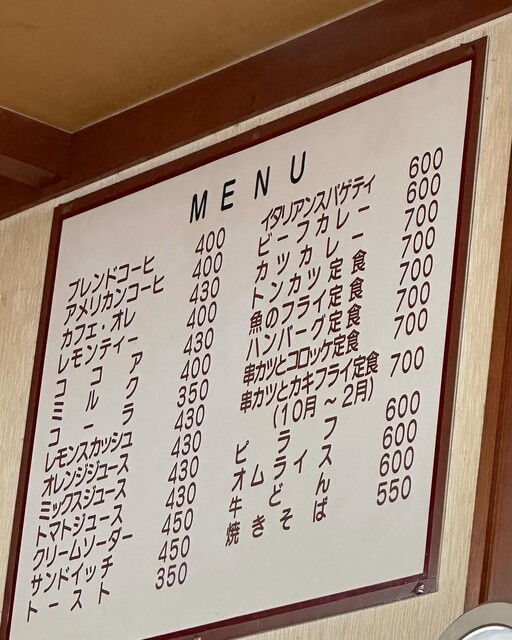 MENU
ブレンドコーヒ 400
アメリカンコーヒ 400
カフェ・オレ 430
レモンティー 400
ココア 430
ミルク 400
コーラ 350
レモンスカッシュ 430
オレンジジュース 430
ミックスジュース 430
トマトジュース 430
クリームソーダー 450
サンドイッチ 450
トースト 350
イタリアンスパゲティ 600
ビーフカレー 600
カツカレー 700
トンカツ定食 700
魚のフライ定食 700
ハンバーグ定食 700
串カツとコロッケ定食 700
串カツとカキフライ定食 700
(10月～2月)
ピラフ 600
オムライス 600
牛どん 600
焼きそば 550